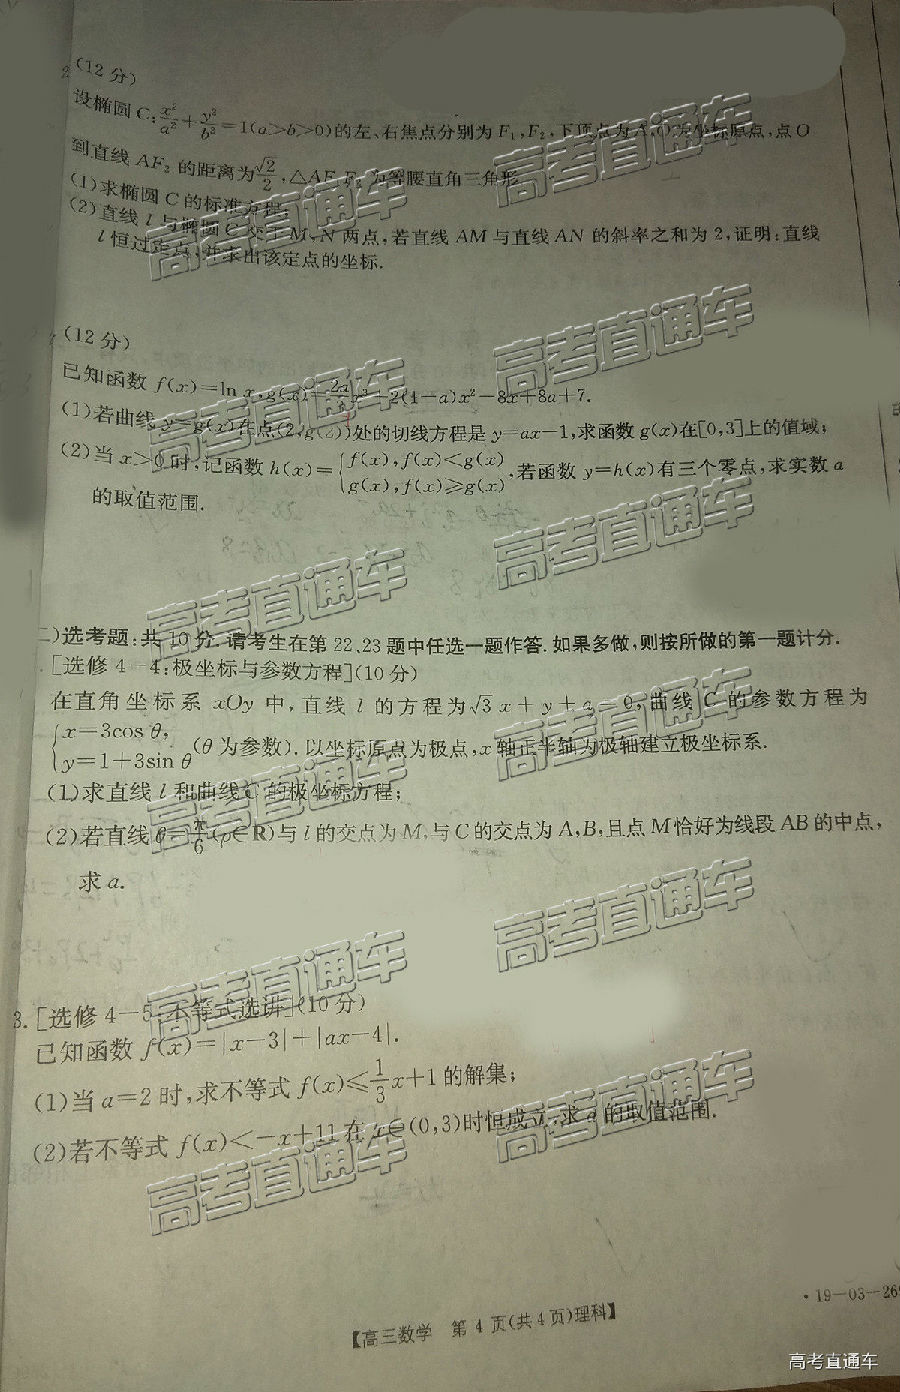 (12分)
设椭圆C:x²/a²+y²/b²=1(a>b>0)的左、右焦点分别为F₁,F₂,下顶点为A,O为坐标原点,点O
到直线AF₂的距离为√2/2,△AF₁F₂为等腰直角三角形.
(1)求椭圆C的标准方程;
(2)直线l与椭圆C交于M,N两点,若直线AM与直线AN的斜率之和为2,证明:直线
l恒过定点,并求出该定点的坐标.
(12分)
已知函数f(x)=ln x,g(x)=2a/3x³+2(1-a)x²-8x+8a+7.
(1)若曲线y=g(x)在点(2,g(2))处的切线方程是y=ax-1,求函数g(x)在[0,3]上的值域;
(2)当x>0时,记函数h(x)={f(x),f(x)<g(x)
g(x),f(x)≥g(x),若函数y=h(x)有三个零点,求实数a
的取值范围.
二)选考题:共10分.请考生在第22、23题中任选一题作答.如果多做,则按所做的第一题计分.
.[选修4-4:极坐标与参数方程](10分)
在直角坐标系xOy中,直线l的方程为√3x+y+a=0,曲线C的参数方程为
{x=3cos θ,
y=1+3sin θ(θ为参数).以坐标原点为极点,x轴正半轴为极轴建立极坐标系.
(1)求直线l和曲线C的极坐标方程;
(2)若直线θ=π/6(ρ∈R)与l的交点为M,与C的交点为A,B,且点M恰好为线段AB的中点,
求a.
3.[选修4-5:不等式选讲](10分)
已知函数f(x)=|x-3|+|ax-4|.
(1)当a=2时,求不等式f(x)≤1/3x+1的解集;
(2)若不等式f(x)<-x+11在x∈(0,3)时恒成立,求a的取值范围.
·19-03-26
【高三数学 第4页(共4页)理科】
高考直通车
高考直通车
高考直通车
高考直通车
高考直通车
高考直通车
高考直通车
高考直通车
高考直通车
高考直通车
高考直通车
高考直通车
高考直通车